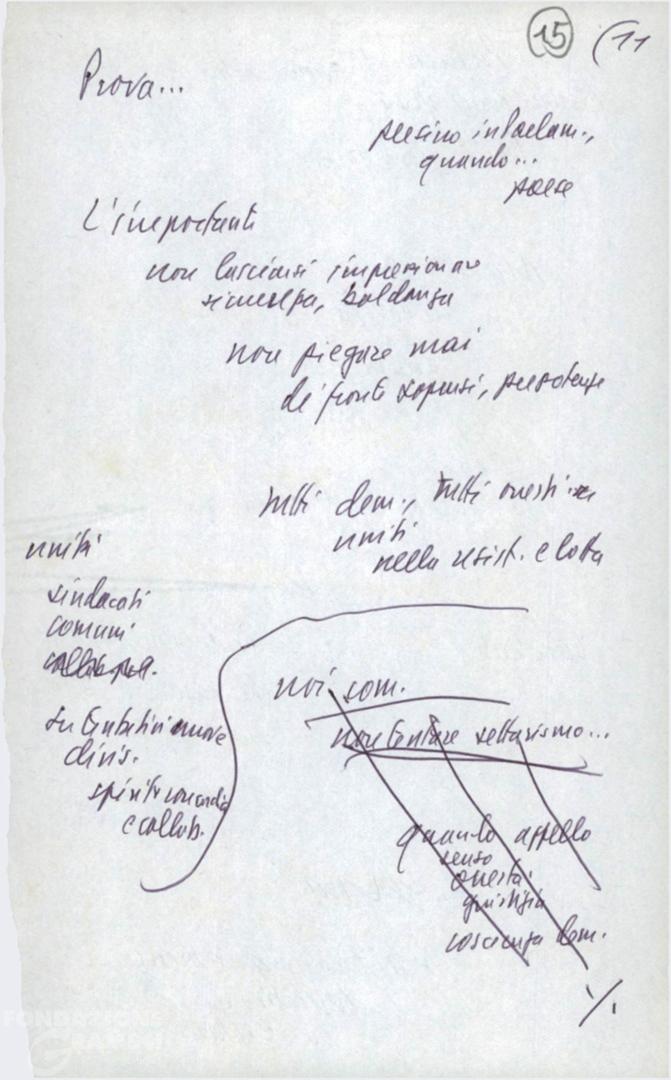 15 (11
Prova...
persino in Parlam.,
quando...
paese
L'importante
non lasciarsi impressionare
sicumera, baldanza
non piegare mai
di fronte soprusi, prepotenze
tutti dem., tutti onesti
uniti
nella resist. e lotta
uniti
sindacati
comuni
su tentativi nuove
divis.
spirito concordia
e collab.
noi com.
non tentare settarismo...
quando appello
senso
onestà
giustizia
coscienza dem.
./.
FONDAZIONE
GRAMSCI